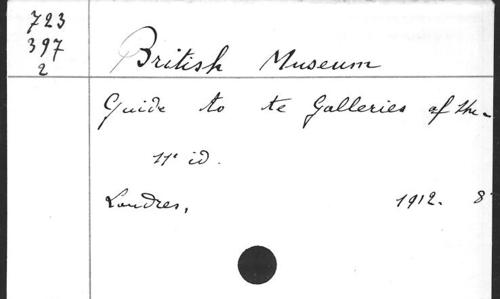 723
397
2
British Museum
Guide to te Galleries of the-
11e id.
Londres, 1912. 8°